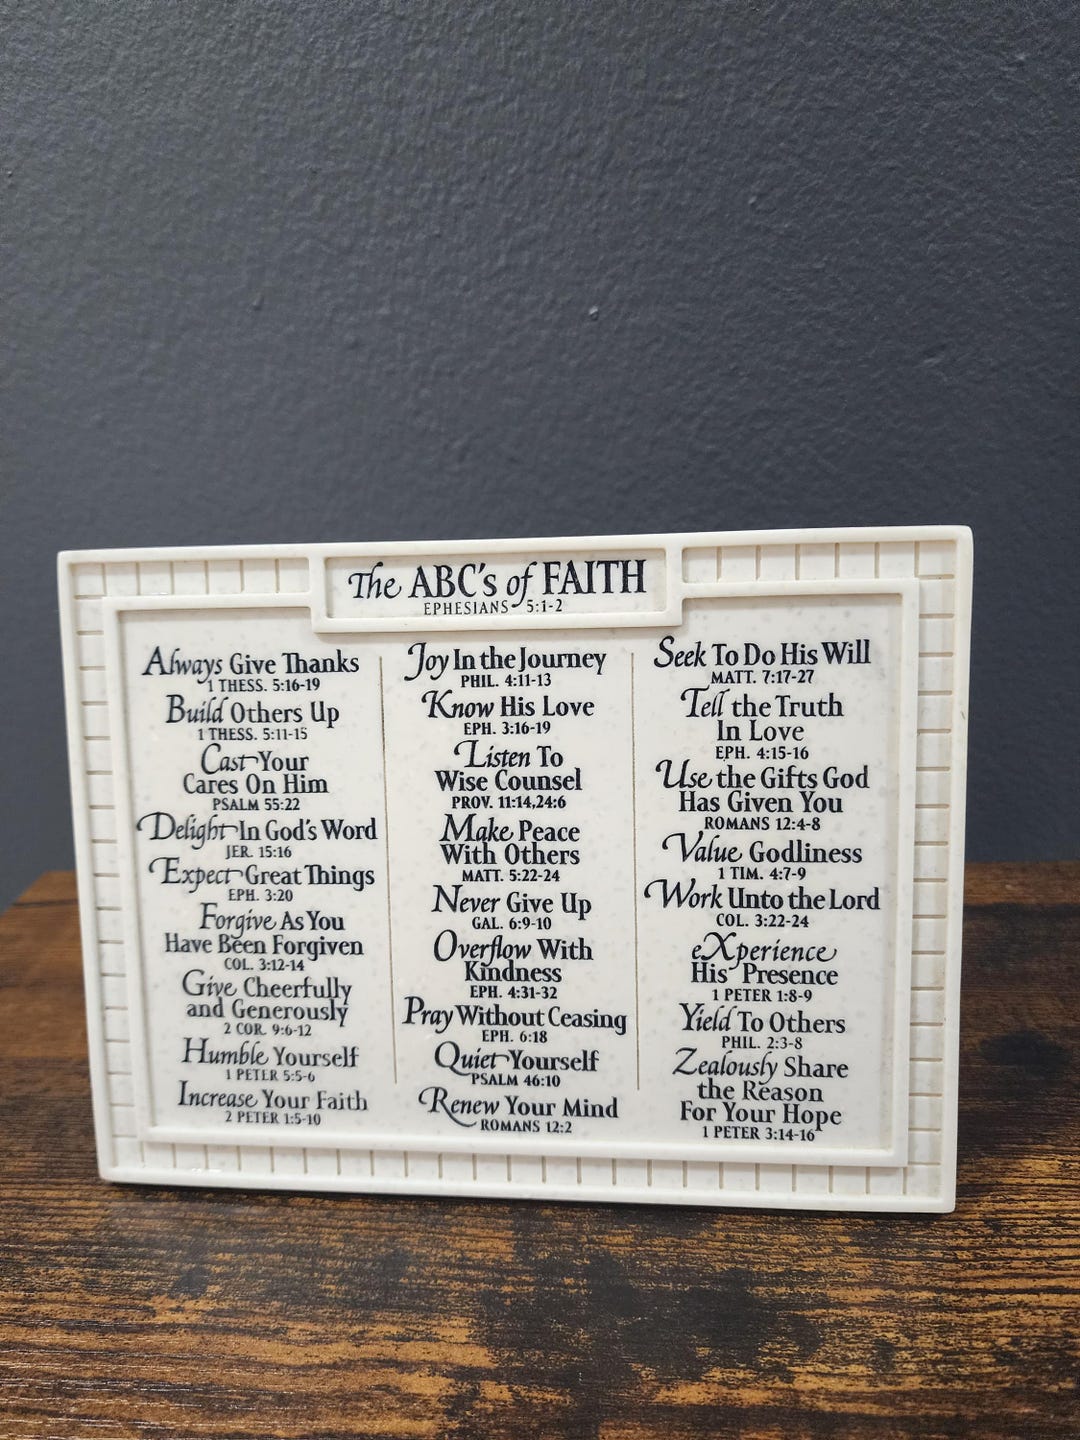 The ABC's of FAITH
EPHESIANS 5:1-2
Always Give Thanks
1 THESS. 5:16-19
Build Others Up
1 THESS. 5:11-15
Cast Your
Cares On Him
PSALM 55:22
Delight In God's Word
JER. 15:16
Expect Great Things
EPH. 3:20
Forgive As You
Have Been Forgiven
COL. 3:12-14
Give Cheerfully
and Generously
2 COR. 9:6-12
Humble Yourself
1 PETER 5:5-6
Increase Your Faith
2 PETER 1:5-10
Joy In the Journey
PHIL. 4:11-13
Know His Love
EPH. 3:16-19
Listen To
Wise Counsel
PROV. 11:14,24:6
Make Peace
With Others
MATT. 5:22-24
Never Give Up
GAL. 6:9-10
Overflow With
Kindness
EPH. 4:31-32
Pray Without Ceasing
EPH. 6:18
Quiet Yourself
PSALM 46:10
Renew Your Mind
ROMANS 12:2
Seek To Do His Will
MATT. 7:17-27
Tell the Truth
In Love
EPH. 4:15-16
Use the Gifts God
Has Given You
ROMANS 12:4-8
Value Godliness
1 TIM. 4:7-9
Work Unto the Lord
COL. 3:22-24
eXperience
His Presence
1 PETER 1:8-9
Yield To Others
PHIL. 2:3-8
Zealously Share
the Reason
For Your Hope
1 PETER 3:14-16